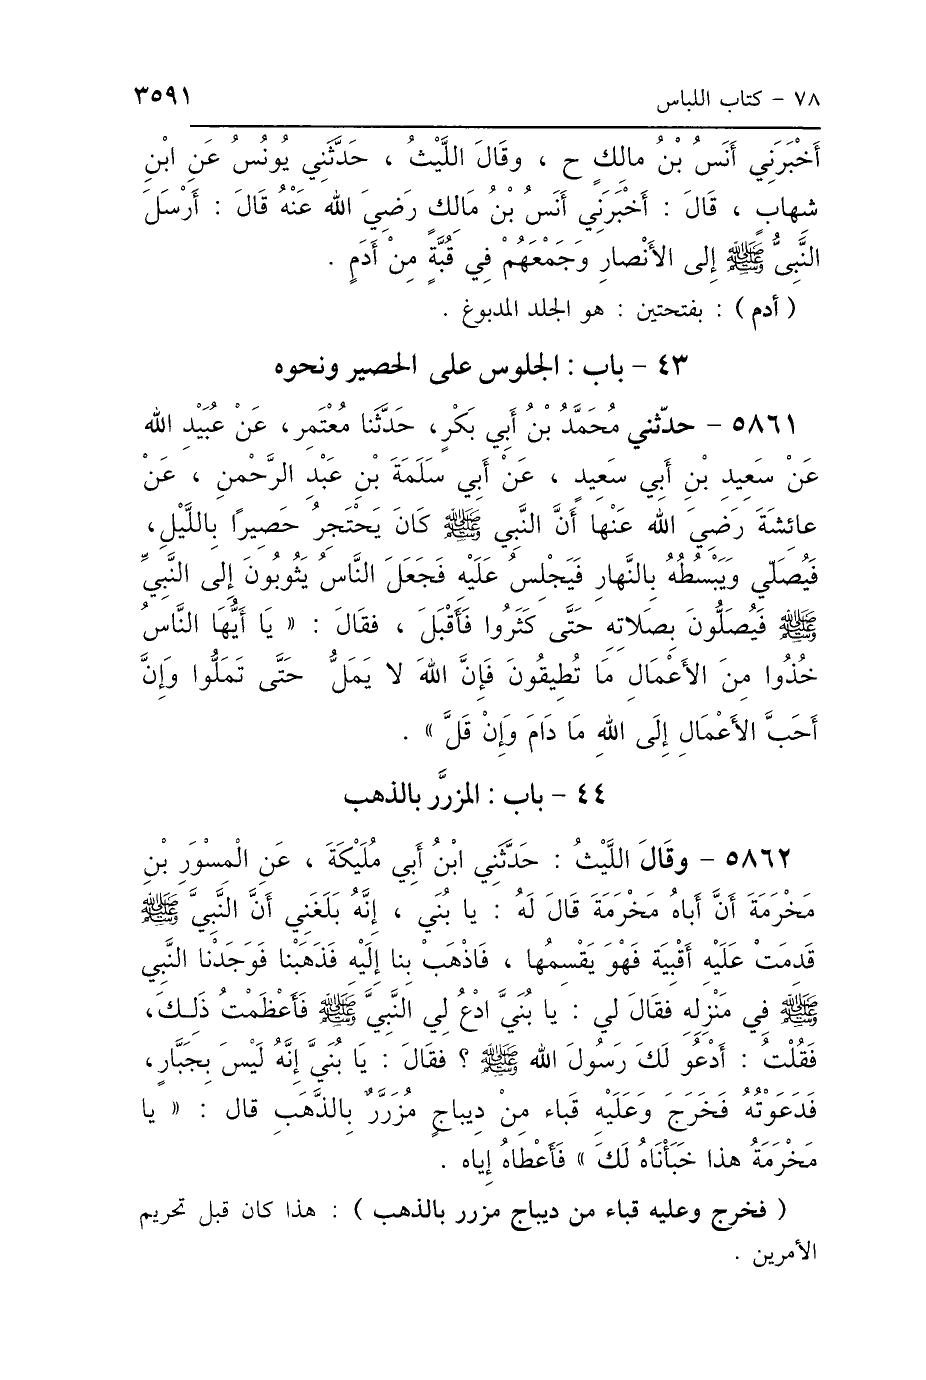 ٧٨ - كتاب اللباس ٣٥٩١
أَخْبَرَنِي أَنَسُ بْنُ مالِكٍ ح ، وقَالَ اللَّيْثُ ، حَدَّثَنِي يُونُسُ عَنِ ابْنِ
شهابٍ ، قَالَ : أَخْبَرَنِي أَنَسُ بْنُ مَالِكٍ رَضِيَ الله عَنْهُ قَالَ : أَرْسَلَ
النَّبِيُّ ﷺ إلى الأَنْصارِ وَجَمْعَهُمْ فِي قُبَّةٍ مِنْ أَدَمٍ .
( أدم ) : بفتحتين : هو الجلد المدبوغ .
٤٣ - باب : الجلوس على الحصير ونحوه
٥٨٦١ - حدّثني مُحَمَّدُ بْنُ أَبِي بَكْرٍ، حَدَّثَنَا مُعْتَمِر، عَنْ عُبَيْدِ الله
عَنْ سَعِيدِ بْنِ أَبِي سَعِيدٍ ، عَنْ أَبِي سَلَمَةَ بْنِ عَبْدِ الرَّحْمنِ ، عَنْ
عائشَةَ رَضِيَ الله عَنْها أَنَّ النَّبِي ﷺ كَانَ يَحْتَجِرُ حَصِيرًا بِاللَّيْلِ،
فَيُصَلِّي وَيَبْسُطُهُ بالنَّهارِ فَيَجْلِسُ عَلَيْهِ فَجَعَلَ النَّاسُ يَثُوبُونَ إلى النَّبِيِّ
ﷺ فَيُصَلُّونَ بِصَلاتِهِ حَتَّى كَثَرُوا فَأَقْبَلَ ، فقَالَ : « يَا أَيُّهَا النَّاسُ
خُذُوا مِنَ الأَعْمَالِ مَا تُطِيقُونَ فَإِنَّ اللهَ لا يَمَلُّ حَتَّى تَمَلُّوا وَإِنَّ
أَحَبَّ الأَعْمَالِ إلَى اللهِ مَا دَامَ وَإِنْ قَلَّ » .
٤٤ - باب : المزرَّر بالذهب
٥٨٦٢ - وقَالَ اللَّيْثُ : حَدَّثَنِي ابْنُ أَبِي مُلَيْكَةَ ، عَنِ الْمِسْوَرِ بْنِ
مَخْرَمَةَ أَنَّ أَباهُ مَخْرَمَةَ قَالَ لَهُ : يا بُنَي ، إنَّهُ بَلَغَنِي أَنَّ النَّبِيَّ ﷺ
قَدِمَتْ عَلَيْهِ أَقْبِيَة فَهْوَ يَقْسِمُها ، فَاذْهَبْ بِنا إلَيْهِ فَذَهَبْنا فَوَجَدْنا النَّبِي
ﷺ فِي مَنْزِلِهِ فقَالَ لِي : يا بُنَيَّ ادْعُ لِي النَّبِيَّ ﷺ فَأَعْظَمْتُ ذَلِكَ،
فَقُلْتُ : أَدْعُو لَكَ رَسُولَ الله ﷺ ؟ فقَالَ : يَا بُنَيَّ إنَّهُ لَيْسَ بِجَبَّارٍ،
فَدَعَوْتُهُ فَخَرَجَ وَعَلَيْهِ قَباء مِنْ دِيباجٍ مُزَرَّرٌ بالذَّهَبِ قال : « يا
مَخْرَمَةُ هذا خَبَأْنَاهُ لَكَ » فَأَعْطاهُ إياه .
( فخرج وعليه قباء من ديباج مزرر بالذهب ) : هذا كان قبل تحريم
الأمرين .